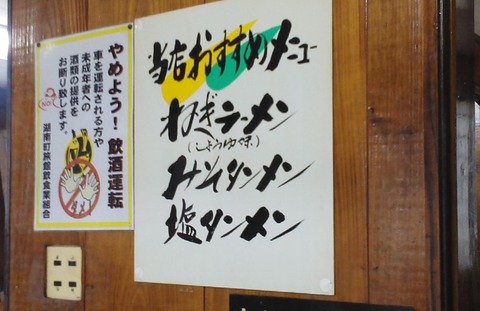 やめよう！飲酒運転
車を運転される方や
未成年者への
酒類の提供を
お断り致します。
NO!
ダメ
湖南町旅館飲食業組合
当店おすすめメニュー
ねぎラーメン
(しょうゆ味)
みそタンメン
塩タンメン